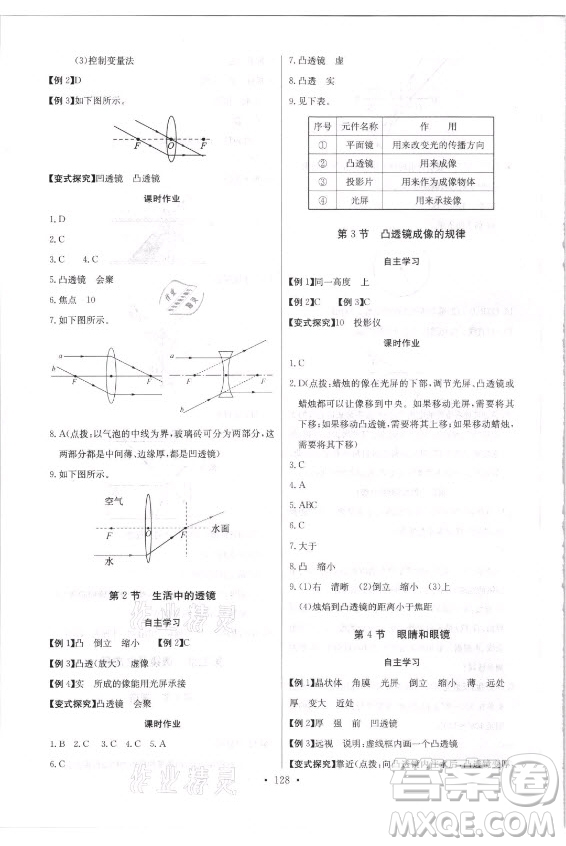 (3)控制变量法
【例 2】D
【例 3】如下图所示。
F O F
【变式探究】凹透镜 凸透镜
课时作业
1. D
2. C
3. C 4. C
5. 凸透镜 会聚
6. 焦点 10
7. 如下图所示。
a
b
F F
a
b
F F
8. A(点拨:以气泡的中线为界,玻璃砖可分为两部分,这
两部分都是中间薄、边缘厚,都是凹透镜)
9. 如下图所示。
空气
F O F 水面
水
第 2 节 生活中的透镜
自主学习
【例 1】凸 倒立 缩小 【例 2】C
【例 3】凸透(放大) 虚像
【例 4】实 所成的像能用光屏承接
【变式探究】凸透镜 会聚
课时作业
1. B 2. C 3. C 4. C 5. A
6. C
7. 凸透镜 虚
8. 凸透 实
9. 见下表。
序号 元件名称 作 用
① 平面镜 用来改变光的传播方向
② 凸透镜 用来成像
③ 投影片 用来作为成像物体
④ 光屏 用来承接像
第 3 节 凸透镜成像的规律
自主学习
【例 1】同一高度 上
【例 2】C 【例 3】C
【变式探究】10 投影仪
课时作业
1. C
2. D(点拨:蜡烛的像在光屏的下部,调节光屏、凸透镜或
蜡烛都可以让像移到中央。如果移动光屏,需要将其
下移;如果移动凸透镜,也需要下移;如果移动蜡烛,
需要将其上移)
3. C
4. A
5. ABC
6. C
7. 大于
8. 凸 缩小
9. (1)右 清晰 (2)倒立 缩小 (3)上
(4)烛焰到凸透镜的距离小于焦距
第 4 节 眼睛和眼镜
自主学习
【例 1】晶状体 角膜 光屏 倒立 缩小 薄 远处
厚 变大 近处
【例 2】厚 强 前 凹透镜
【例 3】远视 说明:虚线框内画一个凸透镜
【变式探究】靠近(点拨:向凸透镜内注水后,凸透镜变厚,
128
作业精灵
作业精灵
答案圈
MXQE.COM